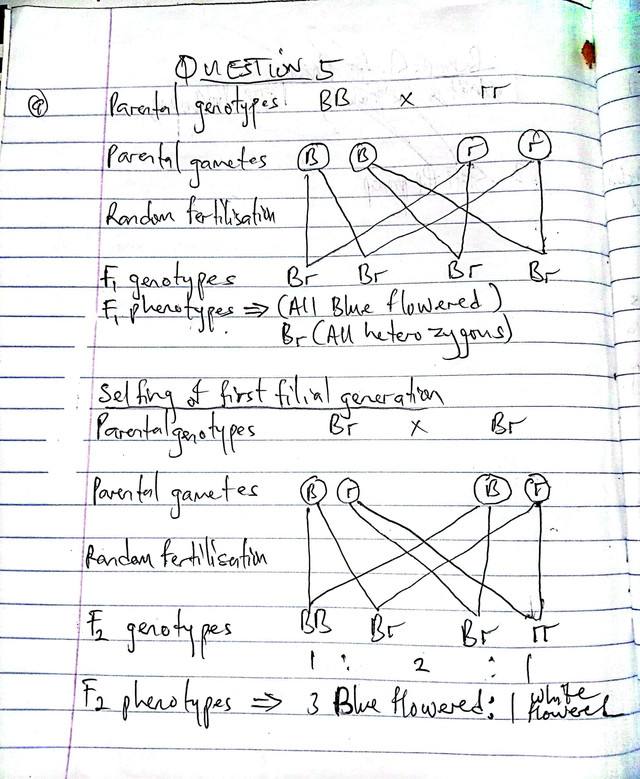 QUESTION 5
(a) Parental genotypes BB x rr
Parental gametes B B r r
Random fertilisation
F1 genotypes Br Br Br Br
F1 phenotypes ⇒ (All Blue flowered)
Br (All heterozygous)
Selfing of first filial generation
Parental genotypes Br x Br
Parental gametes B r B r
Random fertilisation
F2 genotypes BB Br Br rr
1 : 2 : 1
F2 phenotypes ⇒ 3 Blue flowered : 1 white flowered